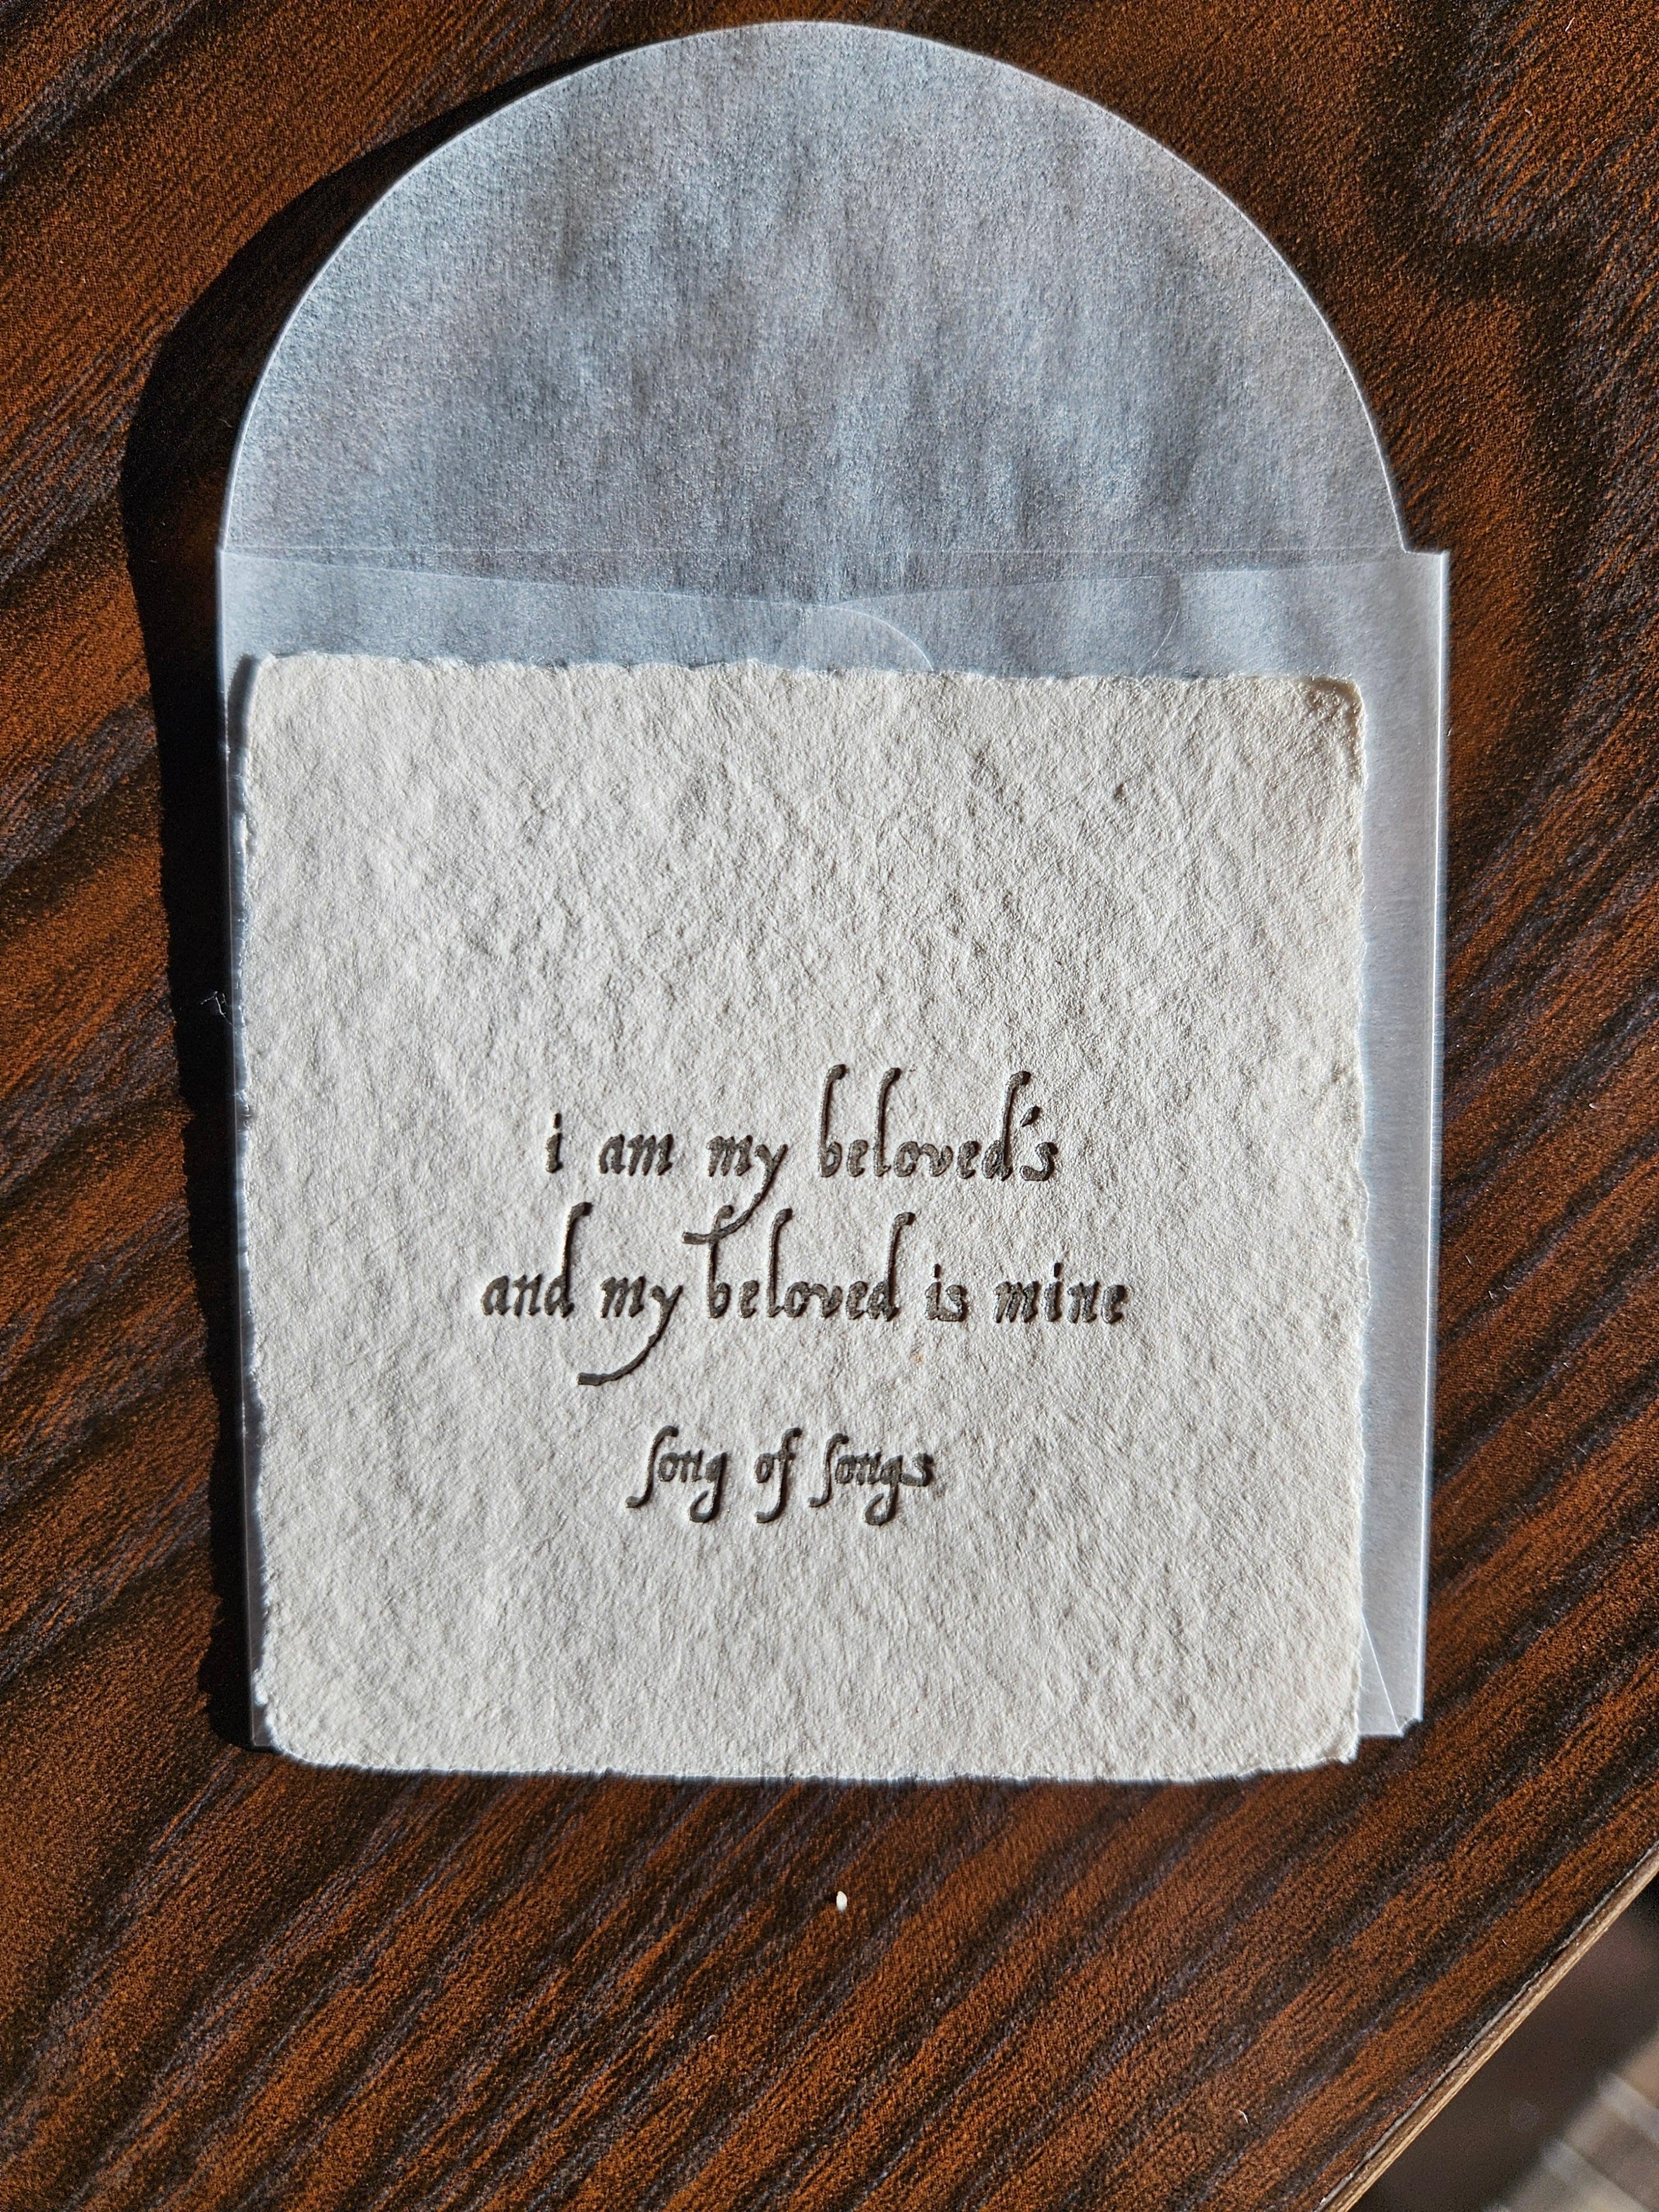 i am my beloved's
and my beloved is mine
song of songs